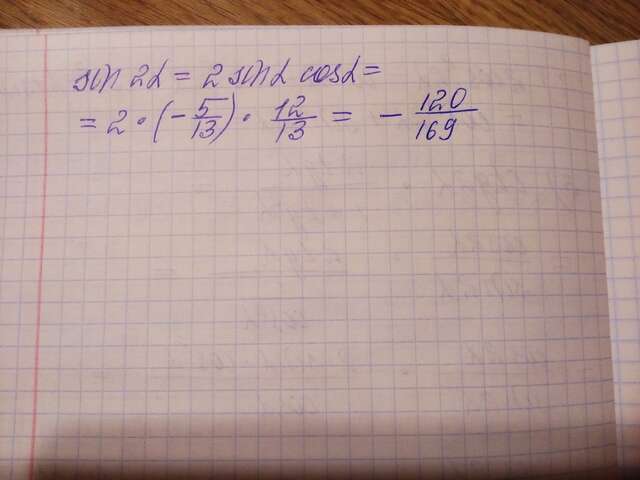 sin 2α = 2 sinα cosα =
= 2 · (-5/13) · 12/13 = - 120/169